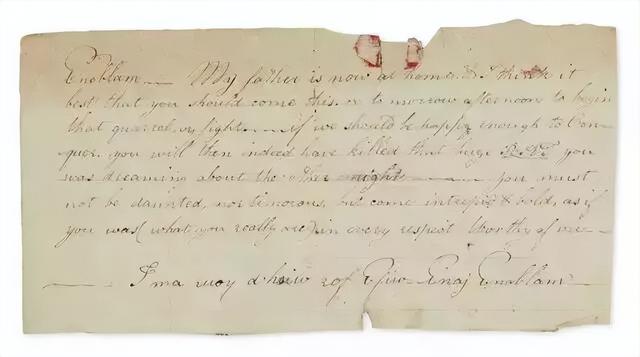 Enoblam — My father is now at home & I think it
best that you should come this, or to morrow afternoon to begin
that quarrel, or fight — if we should be happy enough to Con-
quer, you will then indeed have killed that huge RAT you
was dreaming about the other night — you must
not be daunted, nor timorous, but come intrepid & bold, as if
you was (what you really are) in every respect Worthy of me —
— I ma ruoy d'hsiw rof Efiw - Enaj Enoblam —